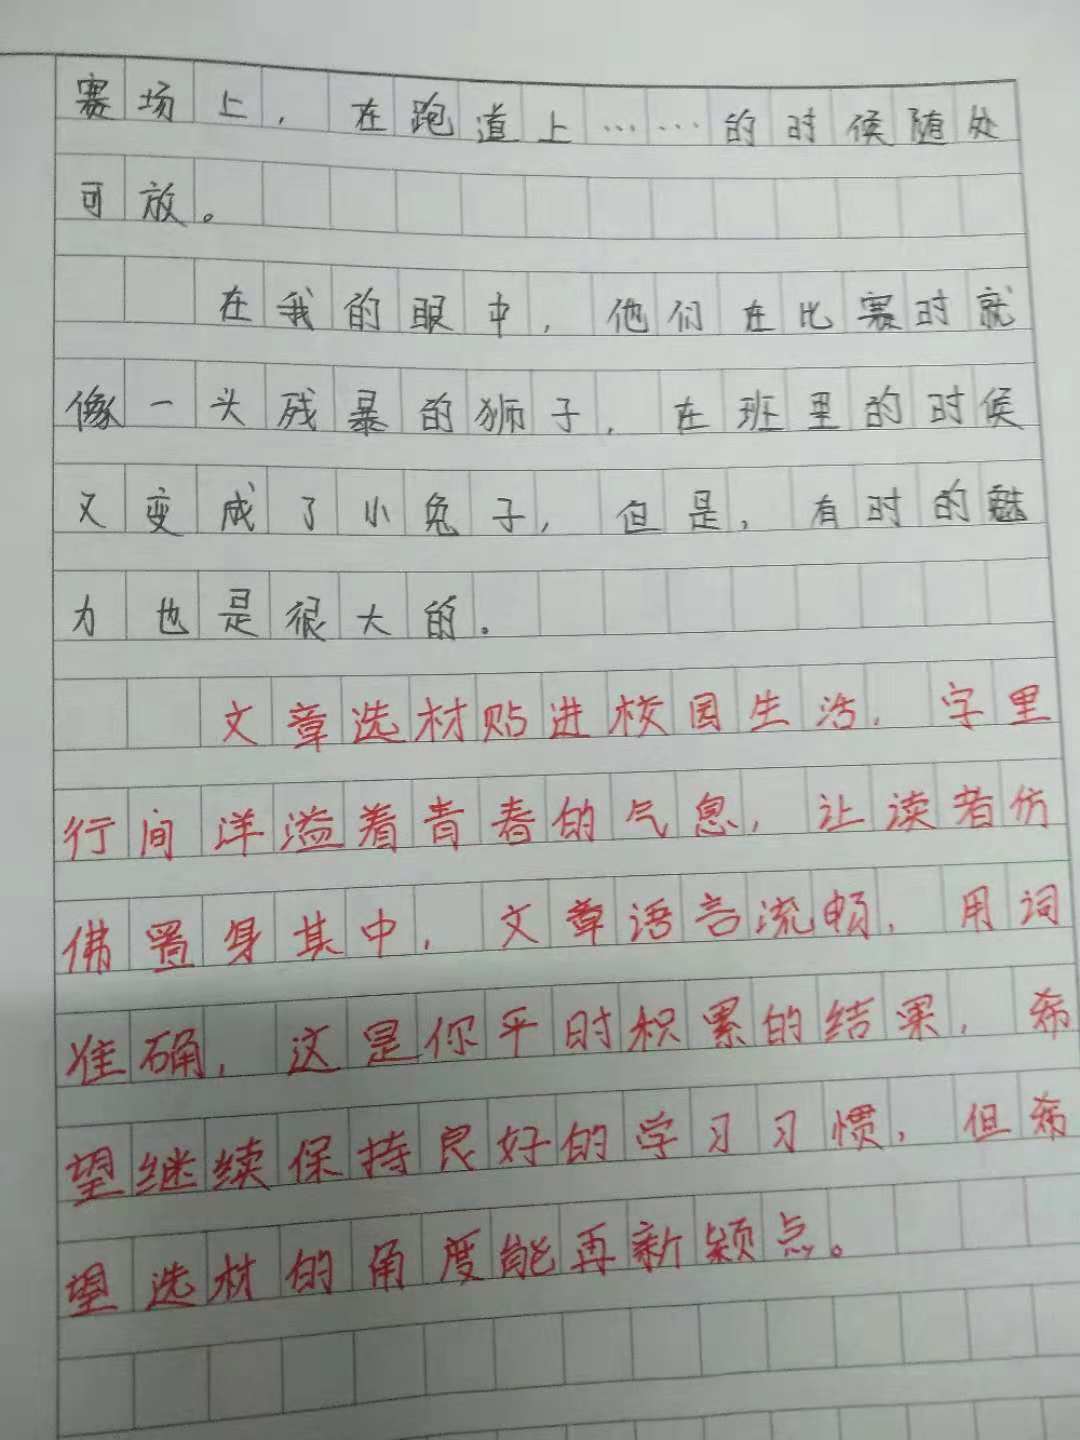 赛场上，在跑道上……的时候随处
可放。
在我的眼中，他们在比赛时就
像一头残暴的狮子，在班里的时候
又变成了小兔子，但是，有时的魅
力也是很大的。
文章选材贴进校园生活，字里
行间洋溢着青春的气息，让读者仿
佛置身其中，文章语言流畅，用词
准确，这是你平时积累的结果，希
望继续保持良好的学习习惯，但希
望选材的角度能再新颖点。